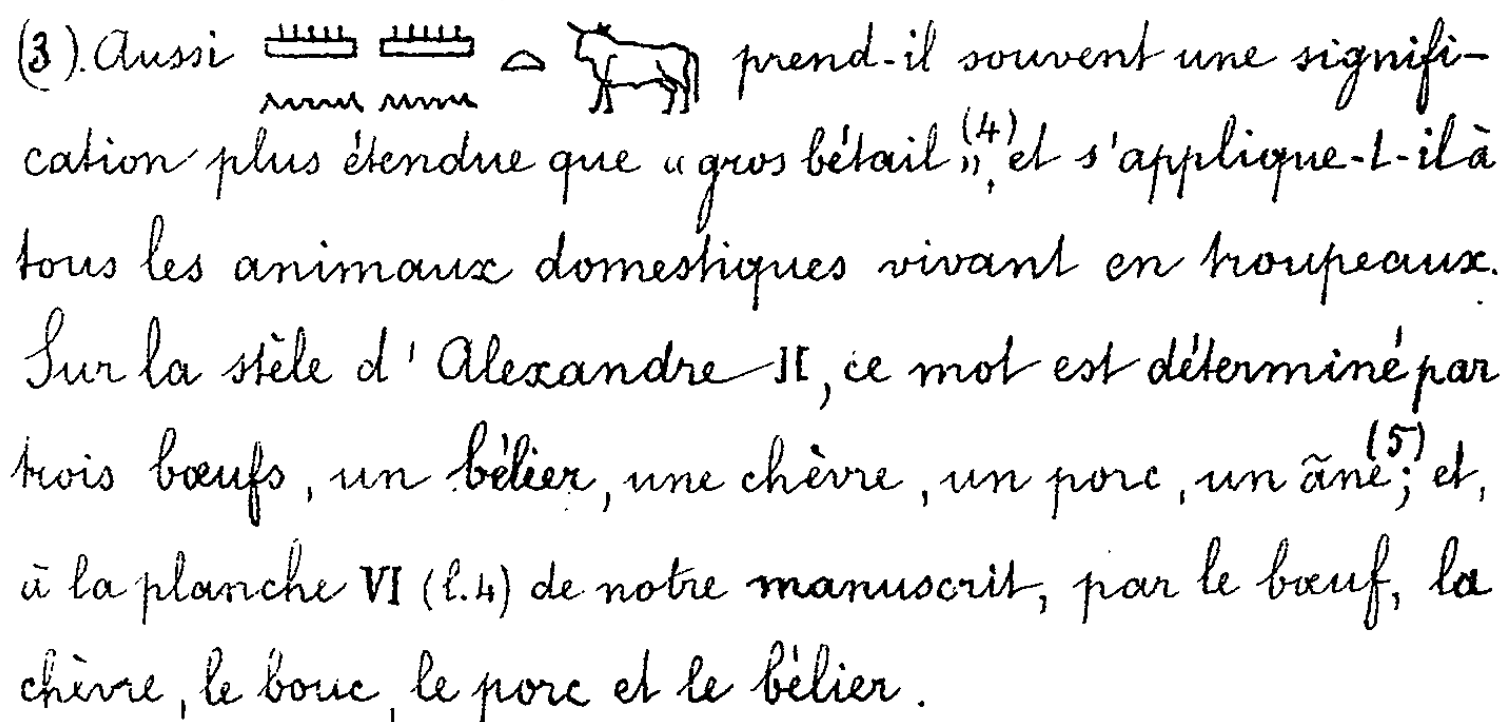 (3). Aussi 𓏠𓈖𓏠𓈖𓏏𓃒 prend-il souvent une signifi-
cation plus étendue que « gros bétail »,(4) et s'applique-t-il à
tous les animaux domestiques vivant en troupeaux.
Sur la stèle d'Alexandre II, ce mot est déterminé par
trois bœufs, un bélier, une chèvre, un porc, un âne(5); et,
à la planche VI (l.4) de notre manuscrit, par le bœuf, la
chèvre, le bouc, le porc et le bélier.